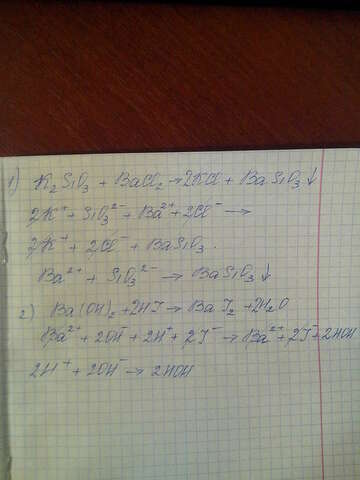 1) K₂SiO₃ + BaCl₂ → 2KCl + BaSiO₃↓
2K⁺ + SiO₃²⁻ + Ba²⁺ + 2Cl⁻ →
2K⁺ + 2Cl⁻ + BaSiO₃.
Ba²⁺ + SiO₃²⁻ → BaSiO₃↓
2) Ba(OH)₂ + 2HJ → BaJ₂ + 2H₂O
Ba²⁺ + 2OH⁻ + 2H⁺ + 2J⁻ → Ba²⁺ + 2J⁻ + 2HOH
2H⁺ + 2OH⁻ → 2HOH